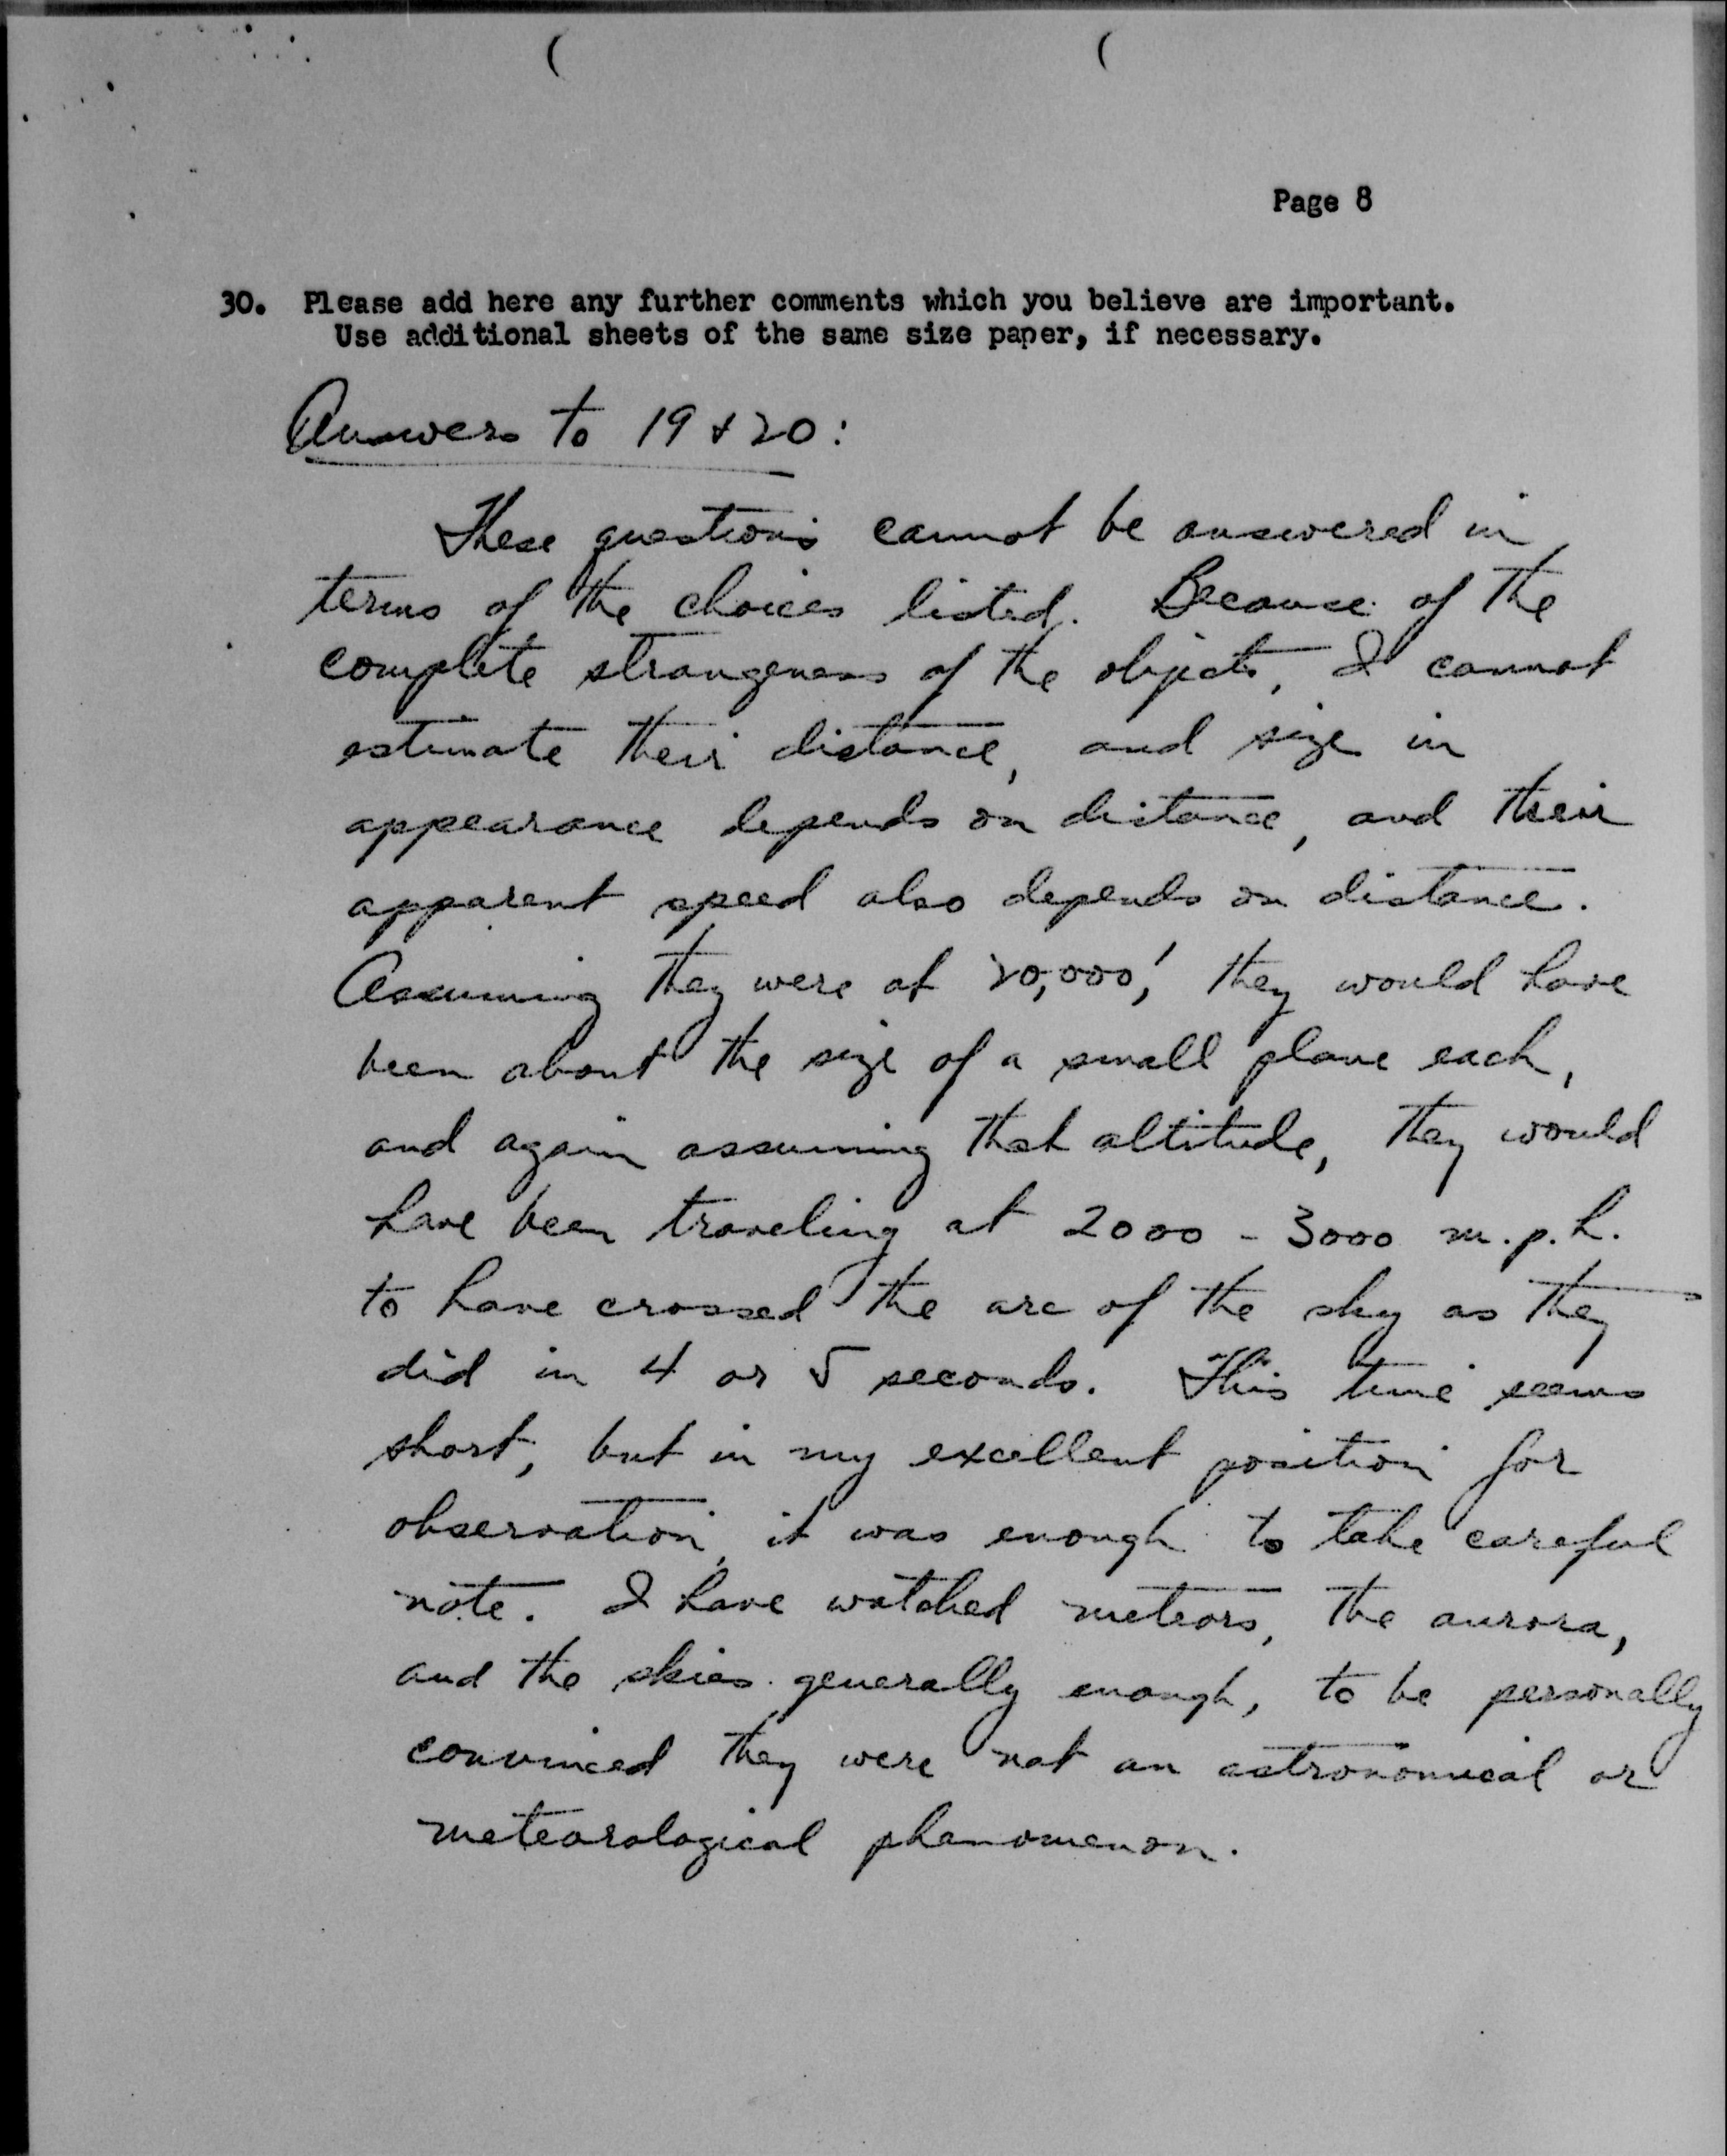 Page 8
30. Please add here any further comments which you believe are important.
Use additional sheets of the same size paper, if necessary.
Answers to 19 & 20:
These questions cannot be answered in
terms of the choices listed. Because of the
complete strangeness of the objects, I cannot
estimate their distance, and size in
appearance depends on distance, and their
apparent speed also depends on distance.
Assuming they were at 20,000', they would have
been about the size of a small plane each,
and again assuming that altitude, they would
have been traveling at 2000 - 3000 m.p.h.
to have crossed the arc of the sky as they
did in 4 or 5 seconds. This time seems
short, but in my excellent position for
observation, it was enough to take careful
note. I have watched meteors, the aurora,
and the skies generally enough, to be personally
convinced they were not an astronomical or
meteorological phenomenon.